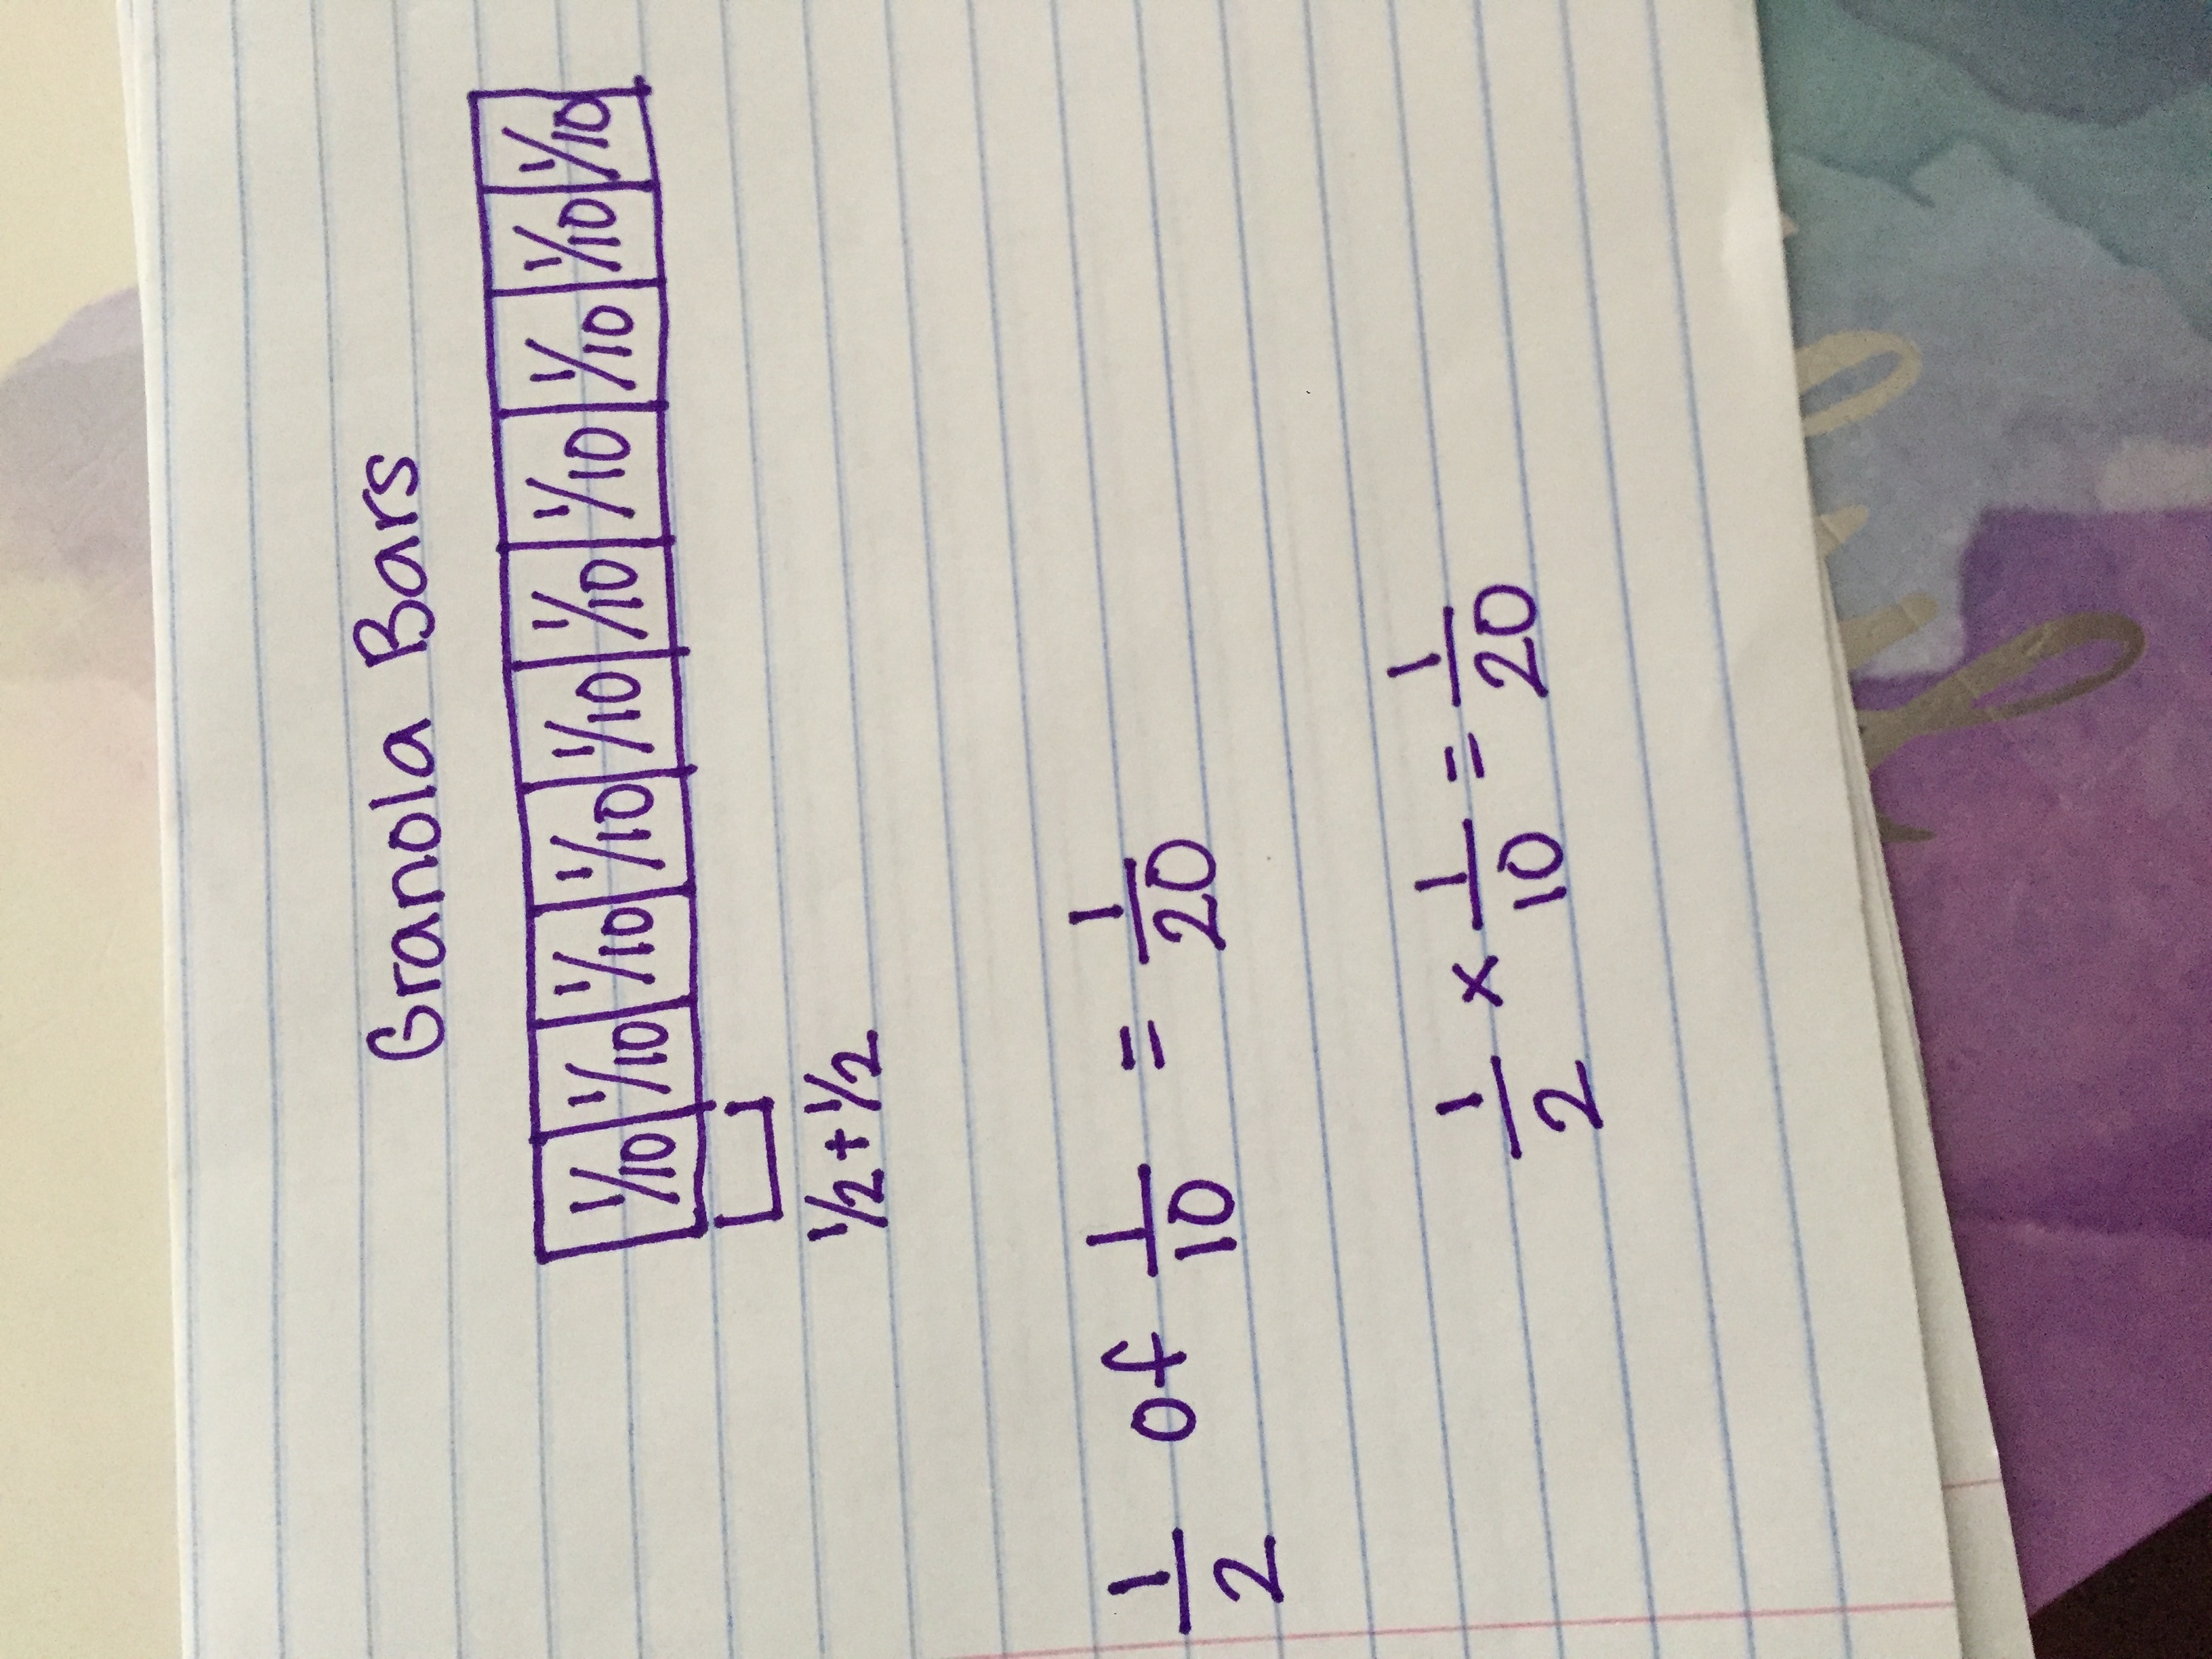 Granola Bars
1/10 1/10 1/10 1/10 1/10 1/10 1/10 1/10 1/10 1/10
1/2 + 1/2
1/2 of 1/10 = 1/20
1/2 x 1/10 = 1/20